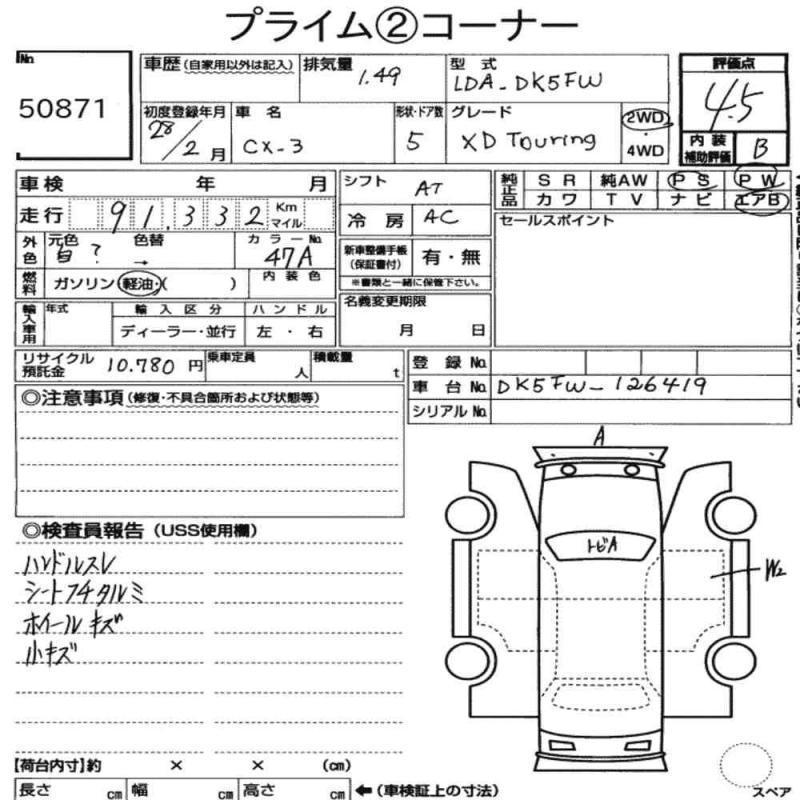 プライム②コーナー
No.
50871
車歴(自家用以外は記入)
排気量
1.49
型式
LDA-DK5FW
評価点
4.5
初度登録年月
28/2月
車名
CX-3
形状・ドア数
5
グレード
XD Touring
2WD
・
4WD
内装補助評価
B
車検 年 月
シフト
AT
純正品
SR 純AW PS PW
カワ TV ナビ エアB
走行 91,332 Km マイル
冷房
AC
セールスポイント
外色
元色 色替
白? →
カラーNo.
47A
新車整備手帳(保証書付)
有・無
※書類と一緒に保管下さい。
燃料
ガソリン・軽油・( )
内装色
名義変更期限
月 日
輸入車用
年式
輸入区分
ディーラー・並行
ハンドル
左・右
リサイクル預託金
10.780円
乗車定員
人
積載量
t
登録No.
車台No.
DK5FW-126419
シリアルNo.
◎注意事項(修復・不具合箇所および状態等)
◎検査員報告(USS使用欄)
ハンドルスレ
シートフチタルミ
ホイールキズ
小キズ
A
トビA
W2
【荷台内寸】約 × × (cm)
長さ cm 幅 cm 高さ cm ←(車検証上の寸法)
スペア